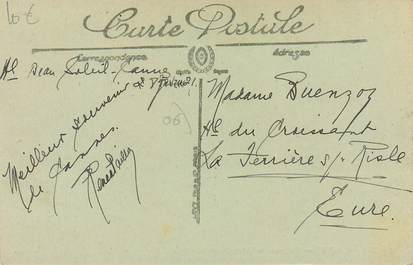 10€
Carte Postale
Correspondance
Adresse
Hel Beau Soleil-Cannes
Meilleur souvenir
de Cannes.
(06)
Madame Buenzoz
Hel du Croissant
La Ferrière s/ Risle
Eure.